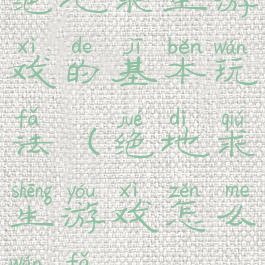 绝地求生游
xì de jī běn wán
戏的基本玩
fǎ jué dì qiú
法（绝地求
shēng yóu xì zěn me
生游戏怎么
wán fǎ